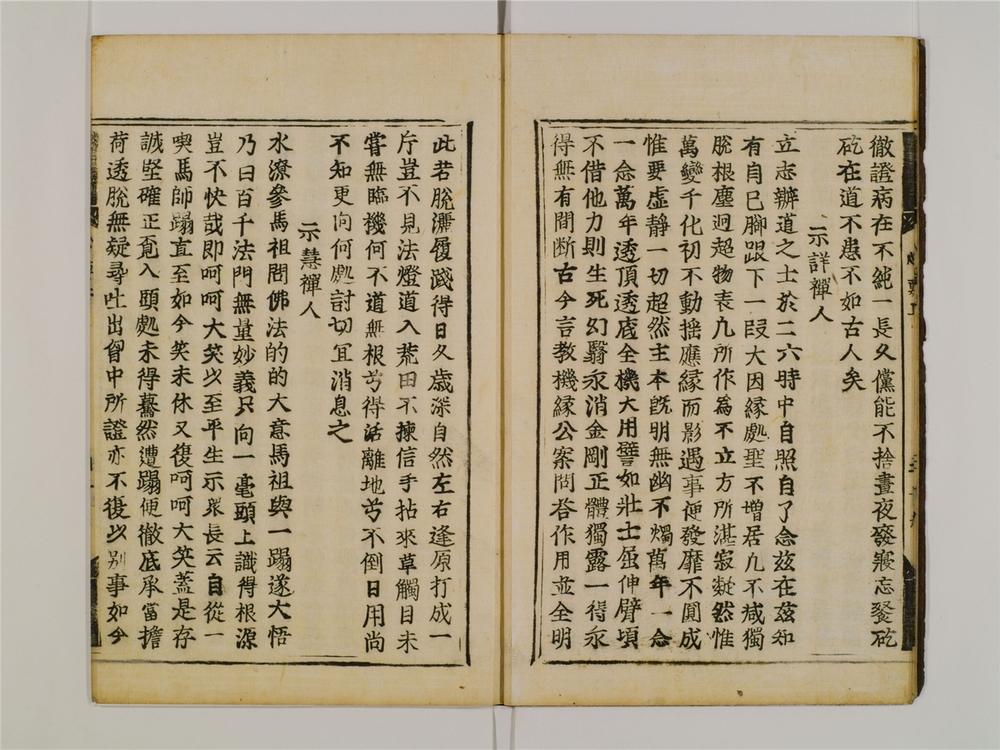 徹證病在不純一長久儻能不捨晝夜廢寢忘餐矻
矻在道不患不如古人矣
示詳禪人
立志辦道之士於二六時中自照自了念茲在茲知
有自己腳跟下一段大因緣處聖不增居凡不減獨
脫根塵迥超物表凡所作為不立方所湛寂凝然惟
萬變千化初不動搖應緣而影遇事便發靡不圓成
惟要虛靜一切超然主本既明無幽不燭萬年一念
一念萬年透頂透底全機大用譬如壯士屈伸臂頃
不借他力則生死幻翳永消金剛正體獨露一得永
得無有間斷古今言教機緣公案問答作用並全明
此若脫灑履踐得日久歲深自然左右逢原打成一
片豈不見法燈道入荒田不揀信手拈來草觸目未
嘗無臨機何不道無根兮得活離地兮不倒日用尚
不知更向何處討切宜消息之
示慧禪人
水潦參馬祖問佛法的的大意馬祖與一蹋遂大悟
乃曰百千法門無量妙義只向一毫頭上識得根源
豈不快哉即呵呵大笑以至平生示眾長云自從一
喫馬師蹋直至如今笑未休又復呵呵大笑蓋是存
誠堅確正覓入頭處未得驀然遭蹋便徹底承當擔
荷透脫無疑尋吐出胷中所證亦不復以別事如今